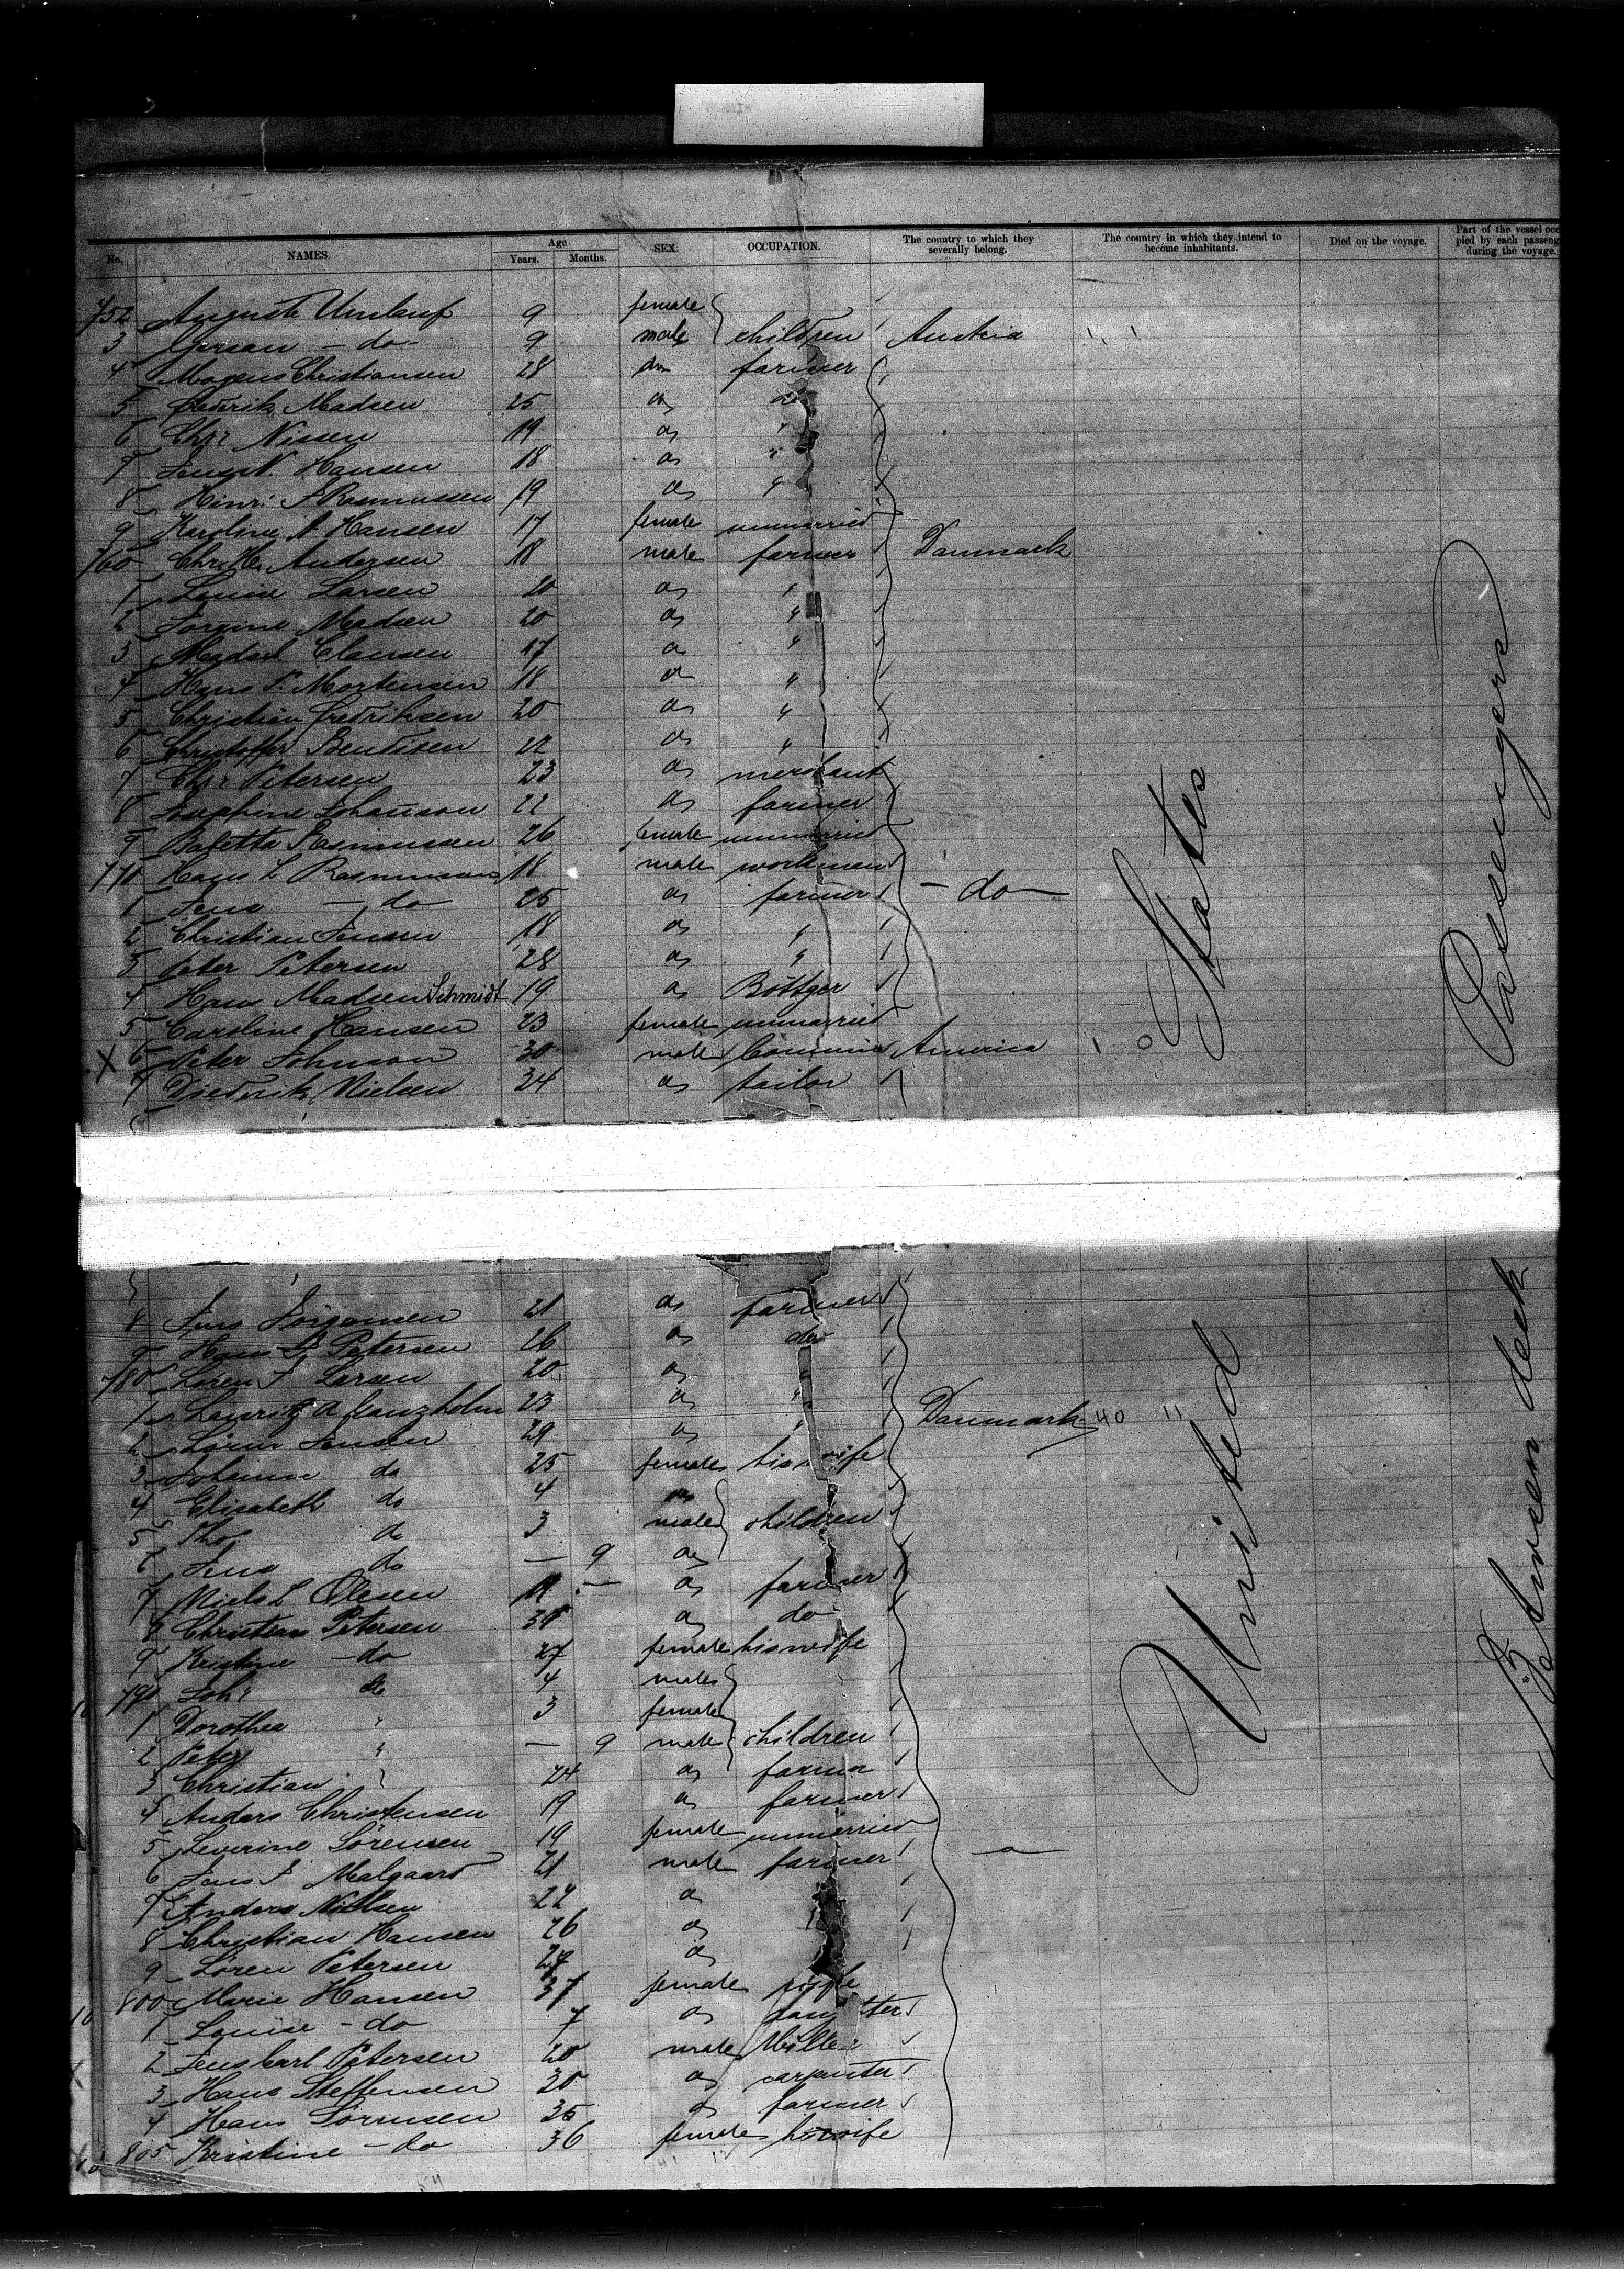 No. NAMES. Age Years. Months. SEX. OCCUPATION. The country to which they severally belong. The country in which they intend to become inhabitants. Died on the voyage. Part of the vessel occ pied by each passeng during the voyage.
752 Auguste Umlauf 9 female
3 — do — 9 male children Austria
4 Mogens Christiansen 28 do farmer
5 Frederik Madsen 25 do do
6 Chr. Nissen 19 do "
7 Jens N. Hansen 18 do "
8 Hinr. J Rasmussen 19 do "
9 Karoline A Hansen 17 female unmarried
760 Chr. H. Andersen 18 male farmer Danmark
1 Larsen 20 do "
2 Madsen 20 do "
3 Clausen 17 do "
4 Hans P. Mortensen 18 do "
5 Christian Fredriksen 20 do "
6 Christoffer Bendtsen 22 do "
7 Chr. Petersen 23 do merchant
8 Johanson 22 do farmer
9 Rasmussen 26 female unmarried
770 Hans L Rasmussen 18 male workman
1 Jens — do 25 do farmer — do —
2 Christian Jensen 18 do "
3 Peter Petersen 28 do "
4 Hans Madsen Schmidt 19 do Böttger
5 Caroline Hansen 23 female unmarried
X 6 Peter Johnson 30 male America
7 Diederik Nielsen 34 do tailor
8 Jens 21 do farmer
9 Hans Petersen 26 do do
780 Sören J Larsen 20 do
1 Lauritz A 23 do "
2 Sören Jensen 29 do " Danmark 40 11
3 Johanne do 25 female his wife
4 Elisabeth do 4
5 do 3 male children
6 Jens do — 9 do
7 Niels L Olesen — do farmer
8 Christian Petersen do do
9 Kristine — do 27 female his wife
790 Joh. do 4 male
1 Dorothea " 3 female
2 Peter " — 9 male children
3 Christian " 24 do farmer
4 Anders Christensen 19 do farmer
5 Severine Sörensen 19 female unmarried
6 Jens J Malgaard 21 male farmer
7 Anders Nielsen 22 do
8 Christian Hansen 26 do
9 Sören Petersen 27 do
800 Marie Hansen 37 female
1 Louise — do 7 do
2 Jens Carl Petersen 20 male Miller
3 Hans Steffensen 30 do carpenter
4 Hans Sörensen 35 do farmer
805 Kristine — do 36 female his wife
United States
Between deck Passengers